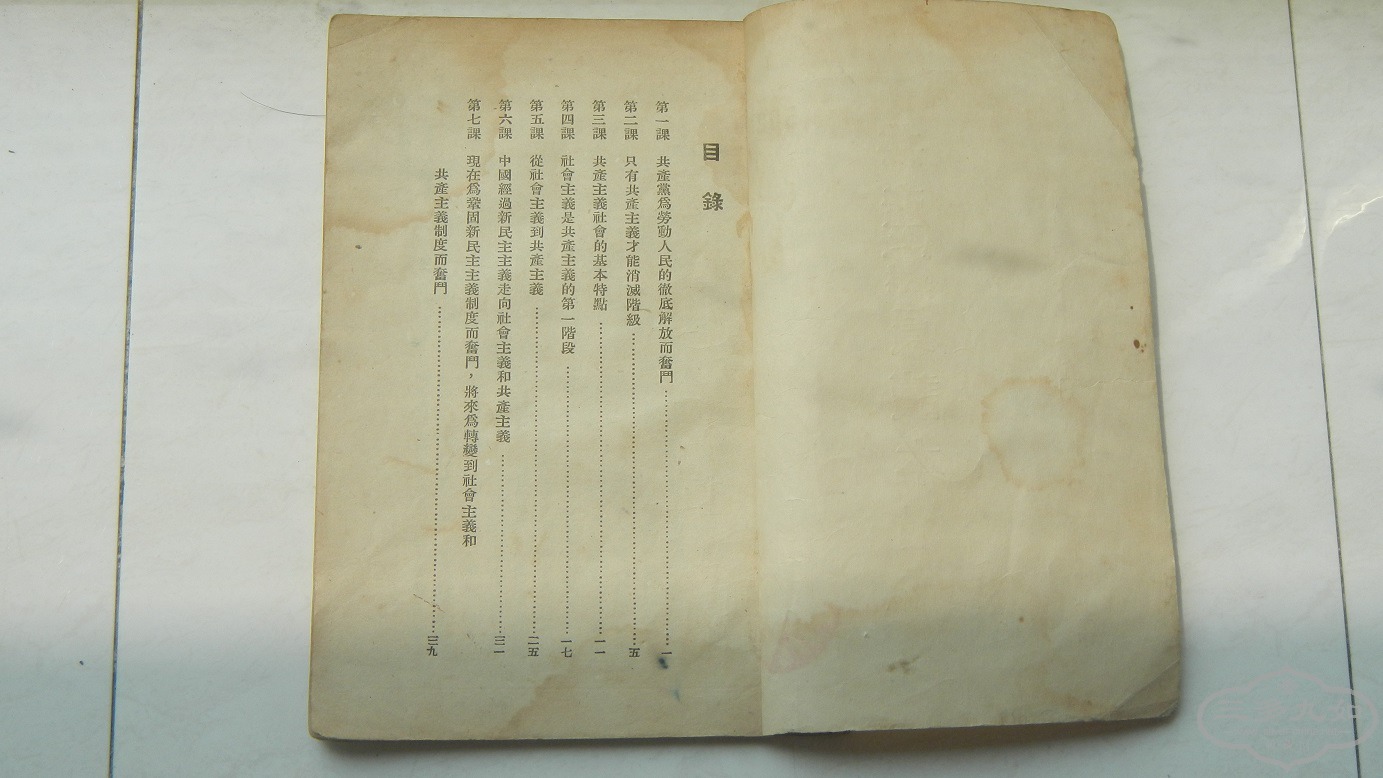 目錄
第一課　共產黨爲勞動人民的徹底解放而奮鬥……一
第二課　只有共產主義才能消滅階級……五
第三課　共產主義社會的基本特點……一一
第四課　社會主義是共產主義的第一階段……一七
第五課　從社會主義到共產主義……二五
第六課　中國經過新民主主義走向社會主義和共產主義……三一
第七課　現在爲鞏固新民主主義制度而奮鬥，將來爲轉變到社會主義和
共產主義制度而奮鬥……三九